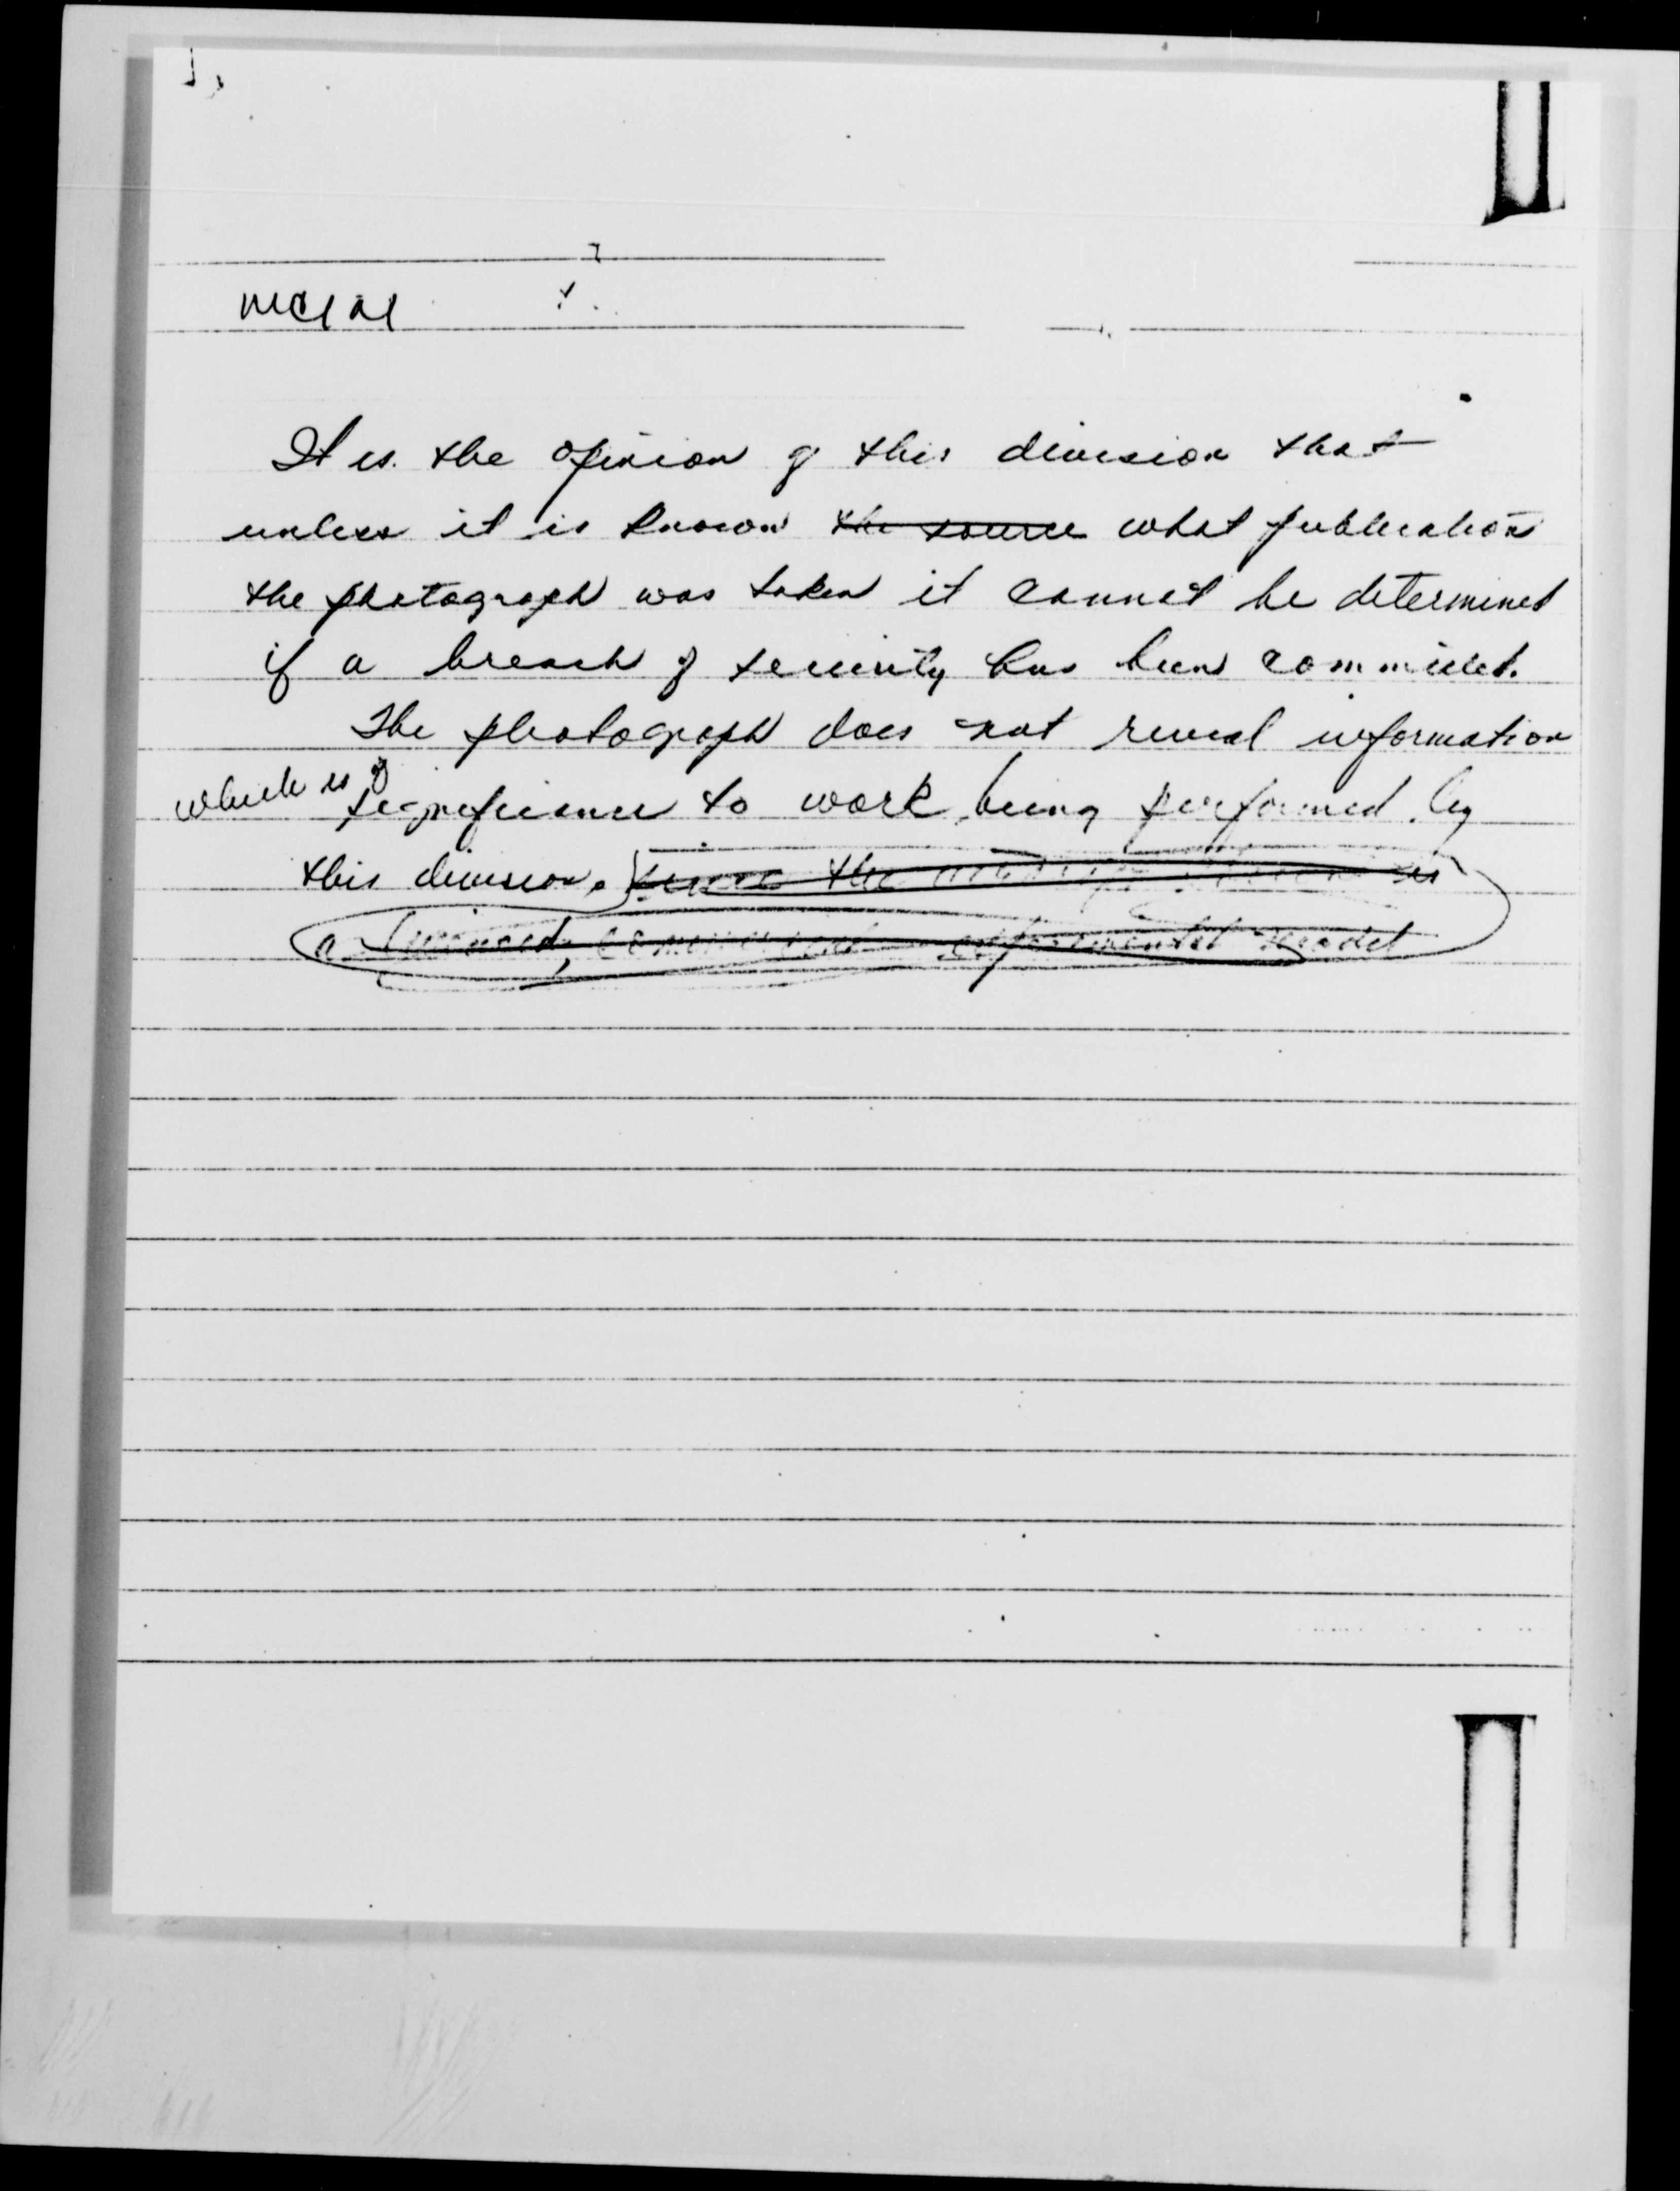 It is the opinion of this division that
unless it is known the source what publication
the photograph was taken it cannot be determined
if a breach of security has been committed.
The photograph does not reveal information
which is of significance to work being performed by
this division. since the is
a experimental model